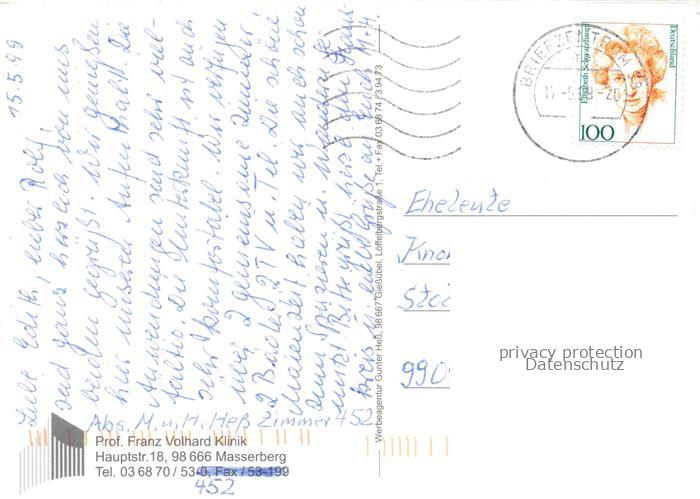 15.5.99
Liebe Edith, lieber Rolf,
seid ganz herzlich von uns
beiden gegrüßt. Wir genießen
hier unseren Aufenthalt. Die
Anwendungen sind sehr viel-
fältig. Die Unterkunft ist auch
sehr komfortabel. Wir verfügen
über 2 gemeinsame Zimmer
2 Bäder 2 TV u. Tel. Die schöne
Maienzeit haben wir auch schon
zum Spazieren u. Wandern
M+H.
Abs. M. u. H. Heß Zimmer 452
Prof. Franz Volhard Klinik
Hauptstr.18, 98 666 Masserberg
Tel. 03 68 70 / 53-0, Fax / 53-199
452
Werbeagentur Gunter Heß, 98 667 Gießübel, Löffelbergstraße 1, Tel.+ Fax 03 68 74 / 3 94 73
BRIEFZENTRUM
Elisabeth Schwarzhaupt
Deutschland
100
Eheleute
Kno
Sto
990
privacy protection
Datenschutz